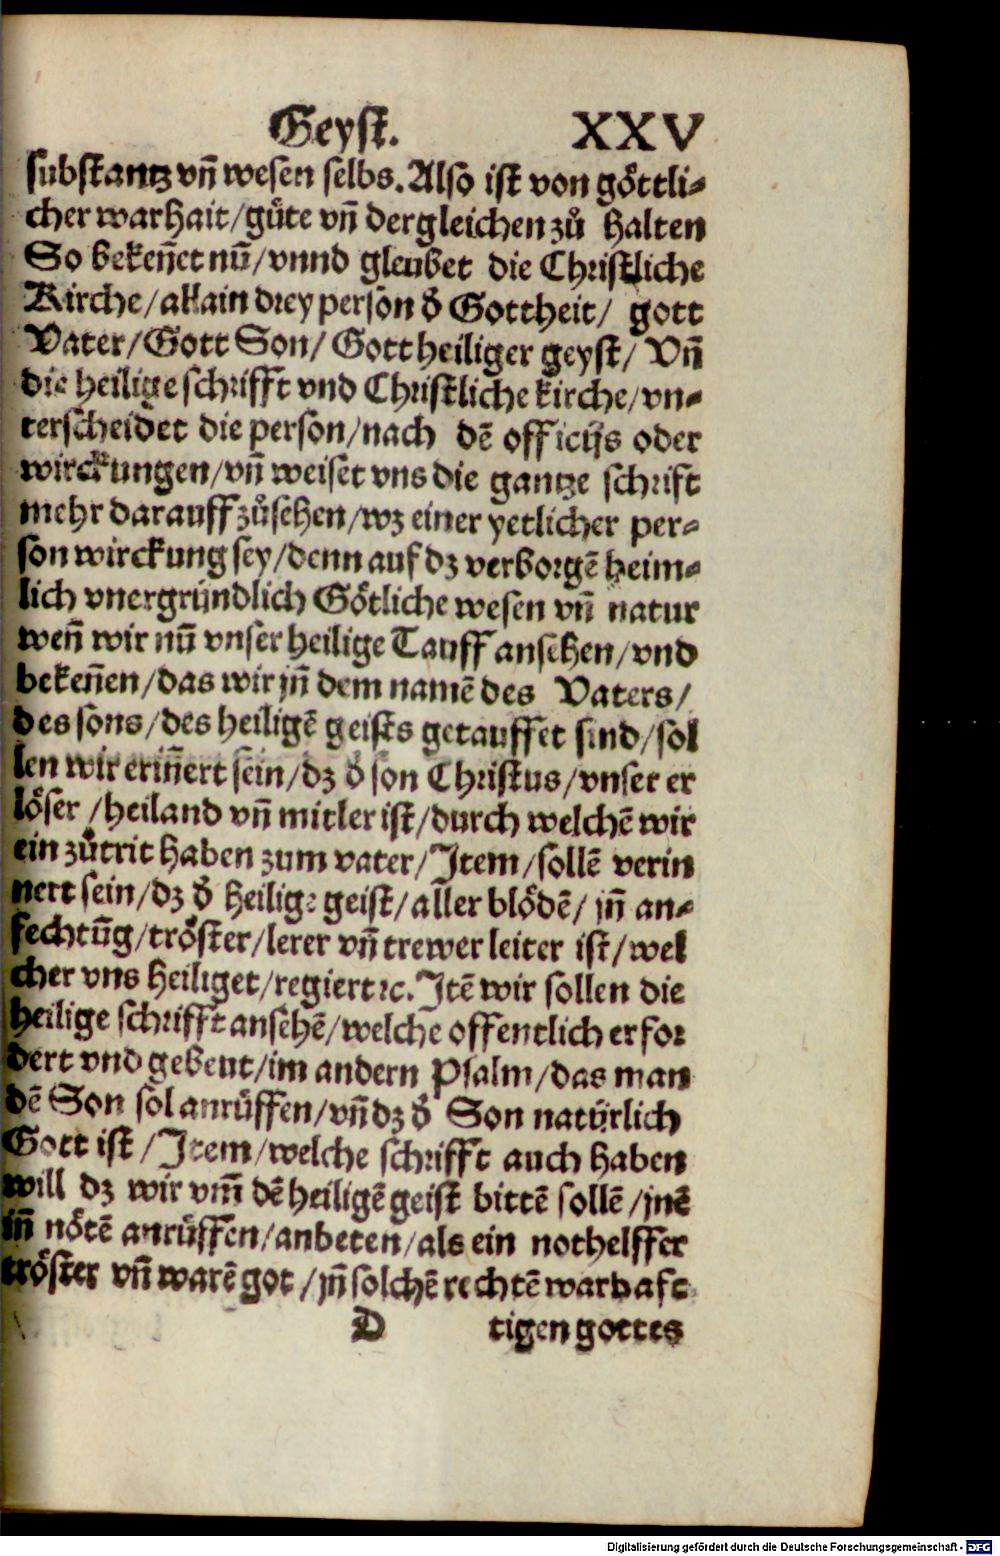 Geyst. XXV
substantz vn̄ wesen selbs. Also ist von göttli⸗
cher warhait/güte vn̄ dergleichen zů halten
So beken̄et nū/vnnd gleubet die Christliche
Kirche/allain drey person ð Gottheit/ gott
Vater/Gott Son/Gott heiliger geyst/ Vn̄
die heilige schrifft vnd Christliche kirche/vn⸗
terscheidet die person/nach dē officijs oder
wirckungen/vn̄ weiset vns die gantze schrift
mehr darauff zůsehen/wz einer yetlicher per⸗
son wirckung sey/denn auf dz verborgē heim⸗
lich vnergründlich Götliche wesen vn̄ natur
wen̄ wir nū vnser heilige Tauff ansehen/vnd
beken̄en/das wir jn̄ dem namē des Vaters/
des sons/des heiligē geists getauffet sind/sol
len wir erin̄ert sein/dz ð son Christus/vnser er
löser/heiland vn̄ mitler ist/durch welchē wir
ein zůtrit haben zum vater/Item/sollē verin
nert sein/dz ð heilige geist/aller blödē/ jn̄ an⸗
fechtūg/tröster/lerer vn̄ trewer leiter ist/wel
cher vns heiliget/regiert ꝛc. Itē wir sollen die
heilige schrifft ansehē/welche offentlich erfor
dert vnd gebeut/im andern Psalm/das man
dē Son sol anrüffen/vn̄ dz ð Son natürlich
Gott ist/Item/welche schrifft auch haben
will dz wir vm̄ dē heiligē geist bittē sollē/jnē
in̄ nötē anrüffen/anbeten/als ein nothelffer
tröster vn̄ warē got/jn̄ solchē rechtē warhaft
D tigen gottes
Digitalisierung gefördert durch die Deutsche Forschungsgemeinschaft - DFG